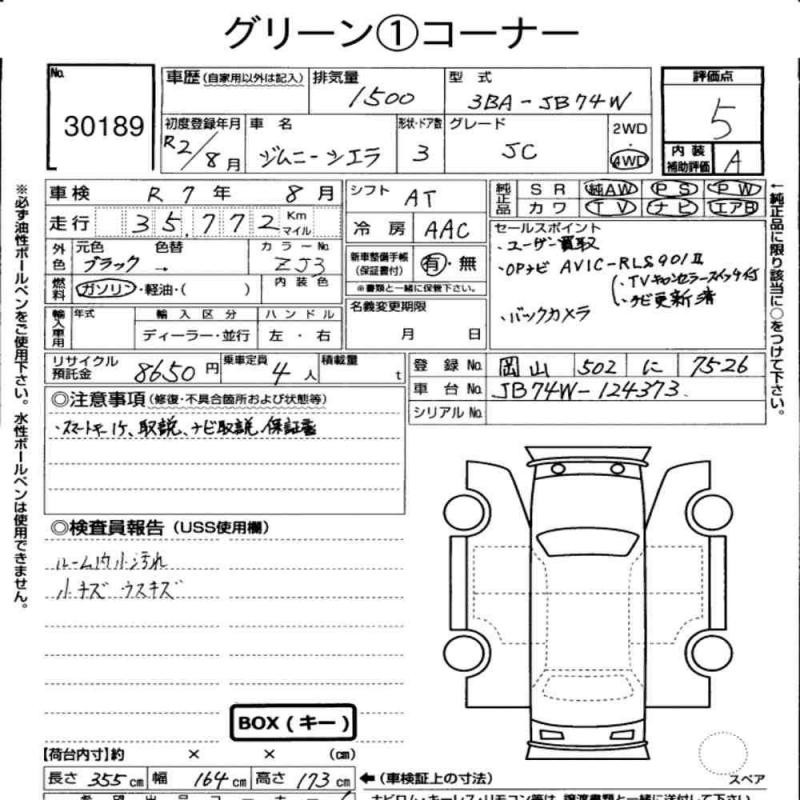 グリーン①コーナー
No. 30189
車歴(自家用以外は記入) 排気量 1500 型式 3BA-JB74W
評価点 5
初度登録年月 R2/8月 車名 ジムニーシエラ 形状・ドア数 3 グレード JC 2WD 4WD
内装補助評価 A
車検 R 7 年 8 月 シフト AT
純正品 SR 純AW PS PW
カワ TV ナビ エアB
走行 35,772 Km マイル 冷房 AAC
外色 元色 ブラック 色替 → カラーNo. ZJ3
新車整備手帳(保証書付) 有・無
※書類と一緒に保管下さい。
セールスポイント
・ユーザー買取
・OPナビ AVIC-RL8901Ⅱ
(・TVキャンセラースイッチ付
・ナビ更新済
・バックカメラ
燃料 ガソリン・軽油・( ) 内装色
名義変更期限 月 日
輸入車用 年式 輸入区分 ハンドル
ディーラー・並行 左・右
リサイクル預託金 8650円 乗車定員 4人 積載量 t
登録No. 岡山 502 に 7526
車台No. JB74W-124373
シリアルNo.
◎注意事項(修復・不具合箇所および状態等)
・スマートキー1ケ、取説、ナビ取説、保証書
◎検査員報告(USS使用欄)
ルーム内小汚れ
小キズ ウスキズ
BOX(キー)
【荷台内寸】約 × × (cm)
長さ 355cm 幅 164cm 高さ 173cm ←(車検証上の寸法)
スペア
ナビロム・キーレス・リモコン等は、譲渡書類と一緒に送付して下さい。
※必ず油性ボールペンをご使用下さい。水性ボールペンは使用できません。
←純正品に限り該当に○をつけて下さい。